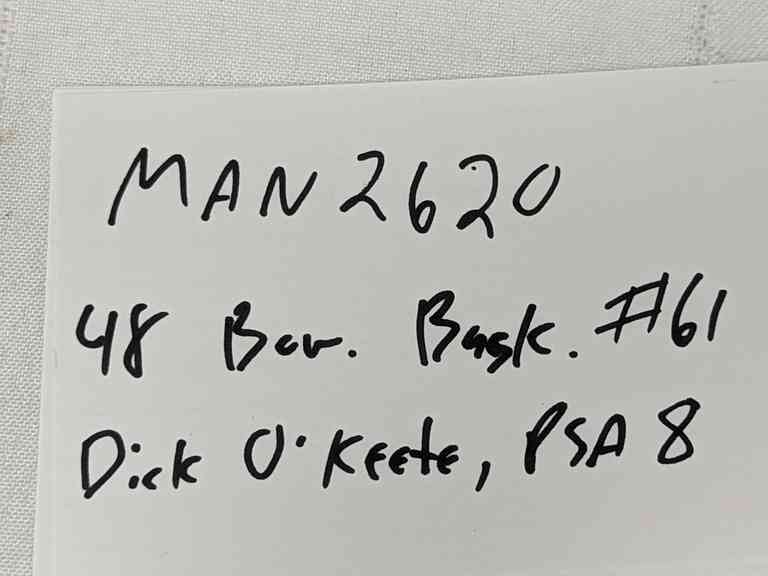 MAN2620
48 Bow. Bask. #61
Dick O'Keefe, PSA 8